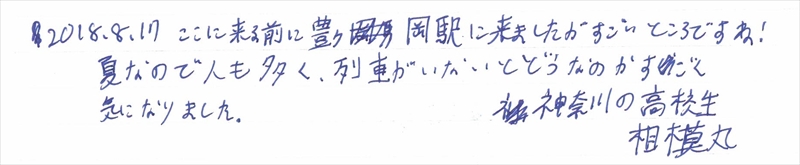 2018.8.17 ここに来る前に豊ヶ岡駅に来ましたがすごいところですね!
夏なので人も多く、列車がいないとどうなのかすごく
気になりました。
神奈川の高校生
相模丸